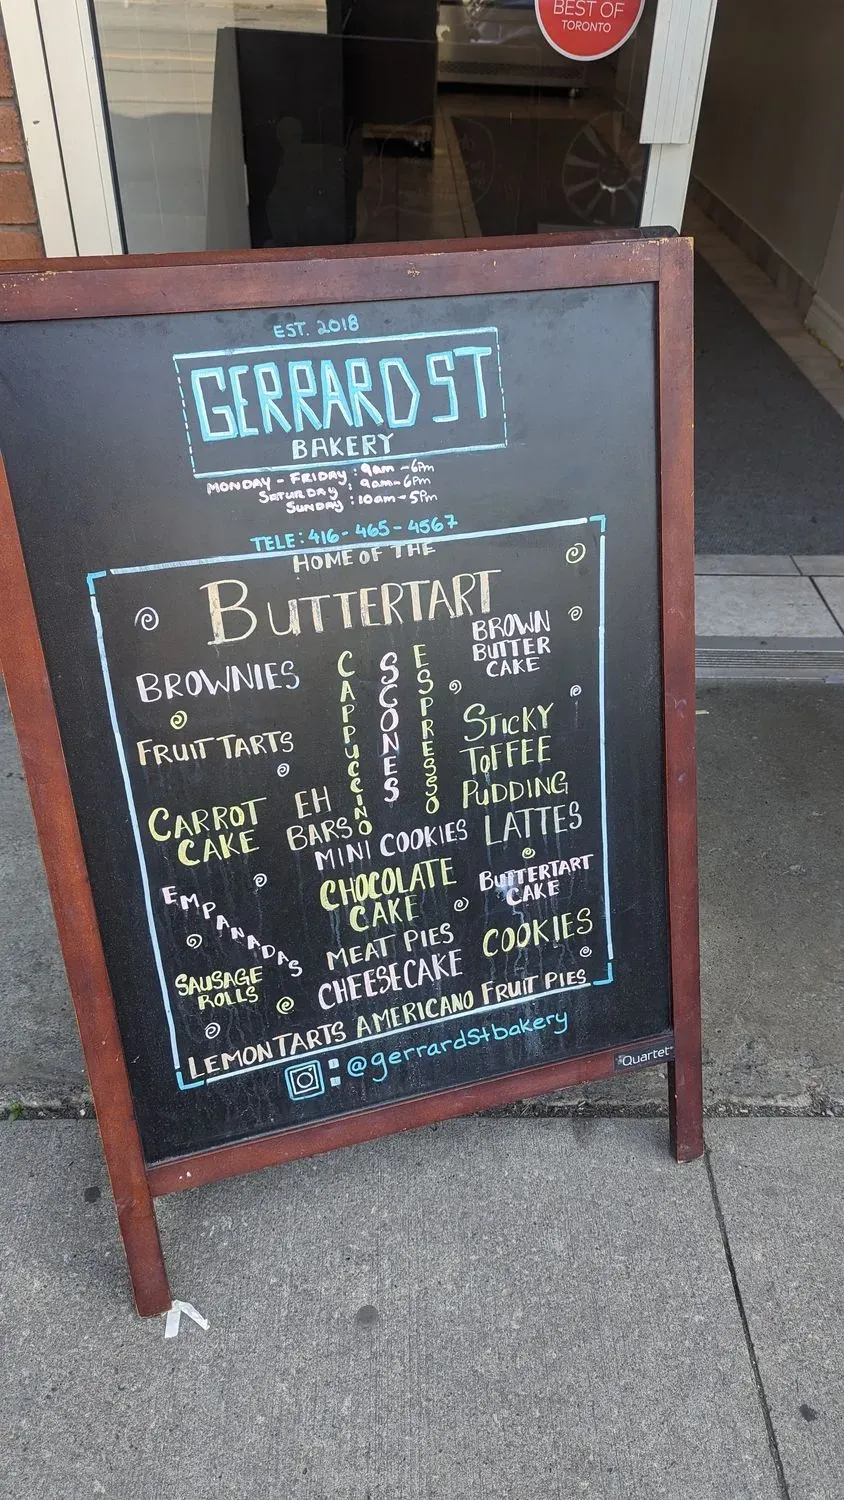 BEST OF
TORONTO
EST. 2018
GERRARD ST
BAKERY
MONDAY - FRIDAY : 9am - 6pm
SATURDAY : 9am - 6pm
SUNDAY : 10am - 5pm
TELE: 416-465-4567
HOME OF THE
BUTTERTART
BROWNIES
CAPPUCCINO
SCONES
ESPRESSO
BROWN
BUTTER
CAKE
FRUIT TARTS
STICKY
TOFFEE
PUDDING
CARROT
CAKE
EH
BARS
MINI COOKIES
LATTES
EMPANADAS
CHOCOLATE
CAKE
BUTTERTART
CAKE
SAUSAGE
ROLLS
MEAT PIES
CHEESECAKE
COOKIES
LEMON TARTS AMERICANO FRUIT PIES
: @gerrardstbakery
Quartet